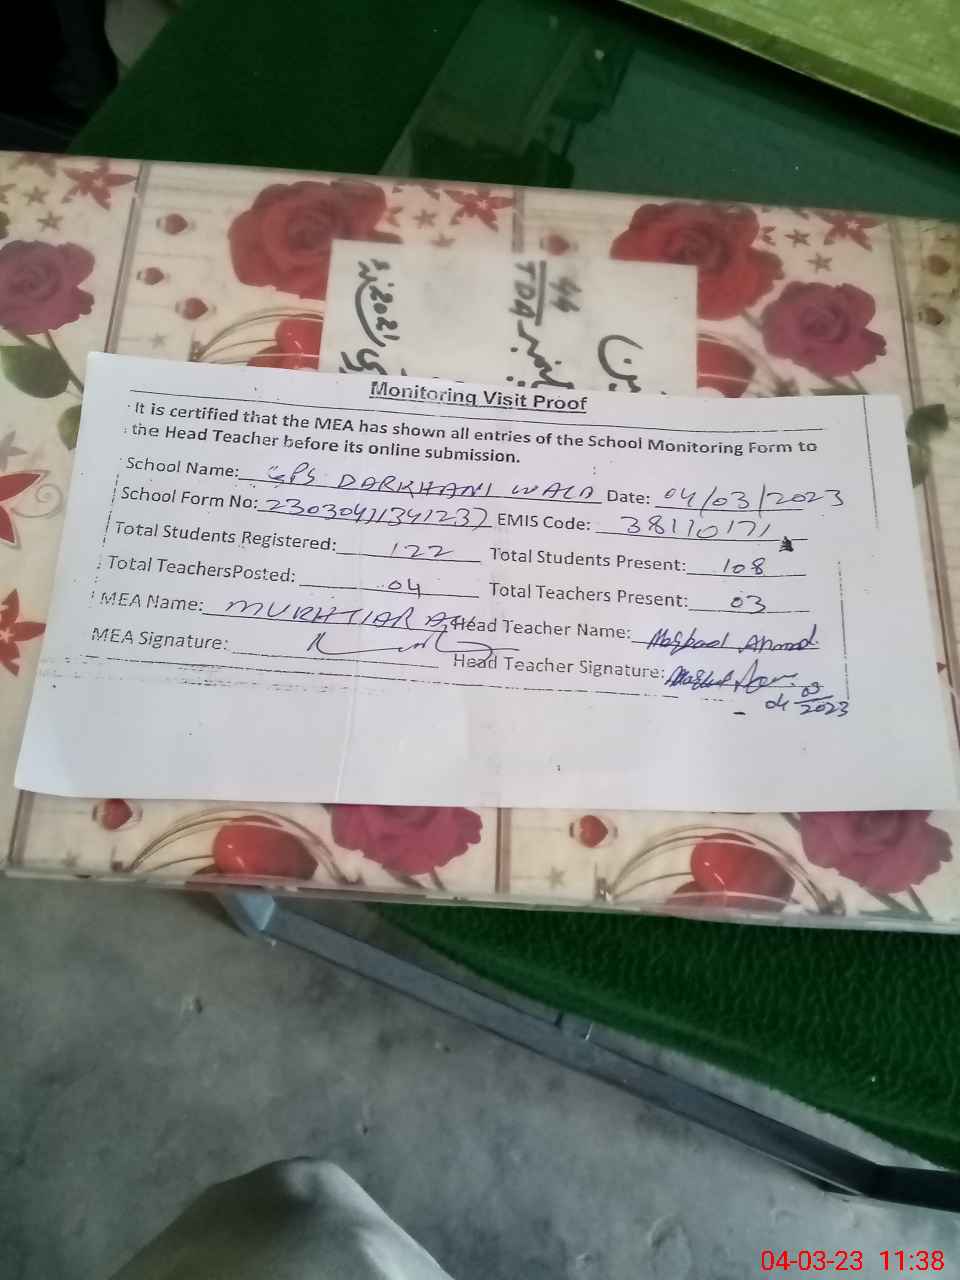 44
TDA
2021
Monitoring Visit Proof
It is certified that the MEA has shown all entries of the School Monitoring Form to
the Head Teacher before its online submission.
School Name: GPS DARKHANI WALA Date: 04/03/2023
School Form No: EMIS Code: 38110171
Total Students Registered: 122 Total Students Present: 108
Total TeachersPosted: 04 Total Teachers Present: 03
MEA Name: MUKHTIAR Head Teacher Name: Ahmad
MEA Signature: Head Teacher Signature:
04 03
2023
04-03-23 11:38